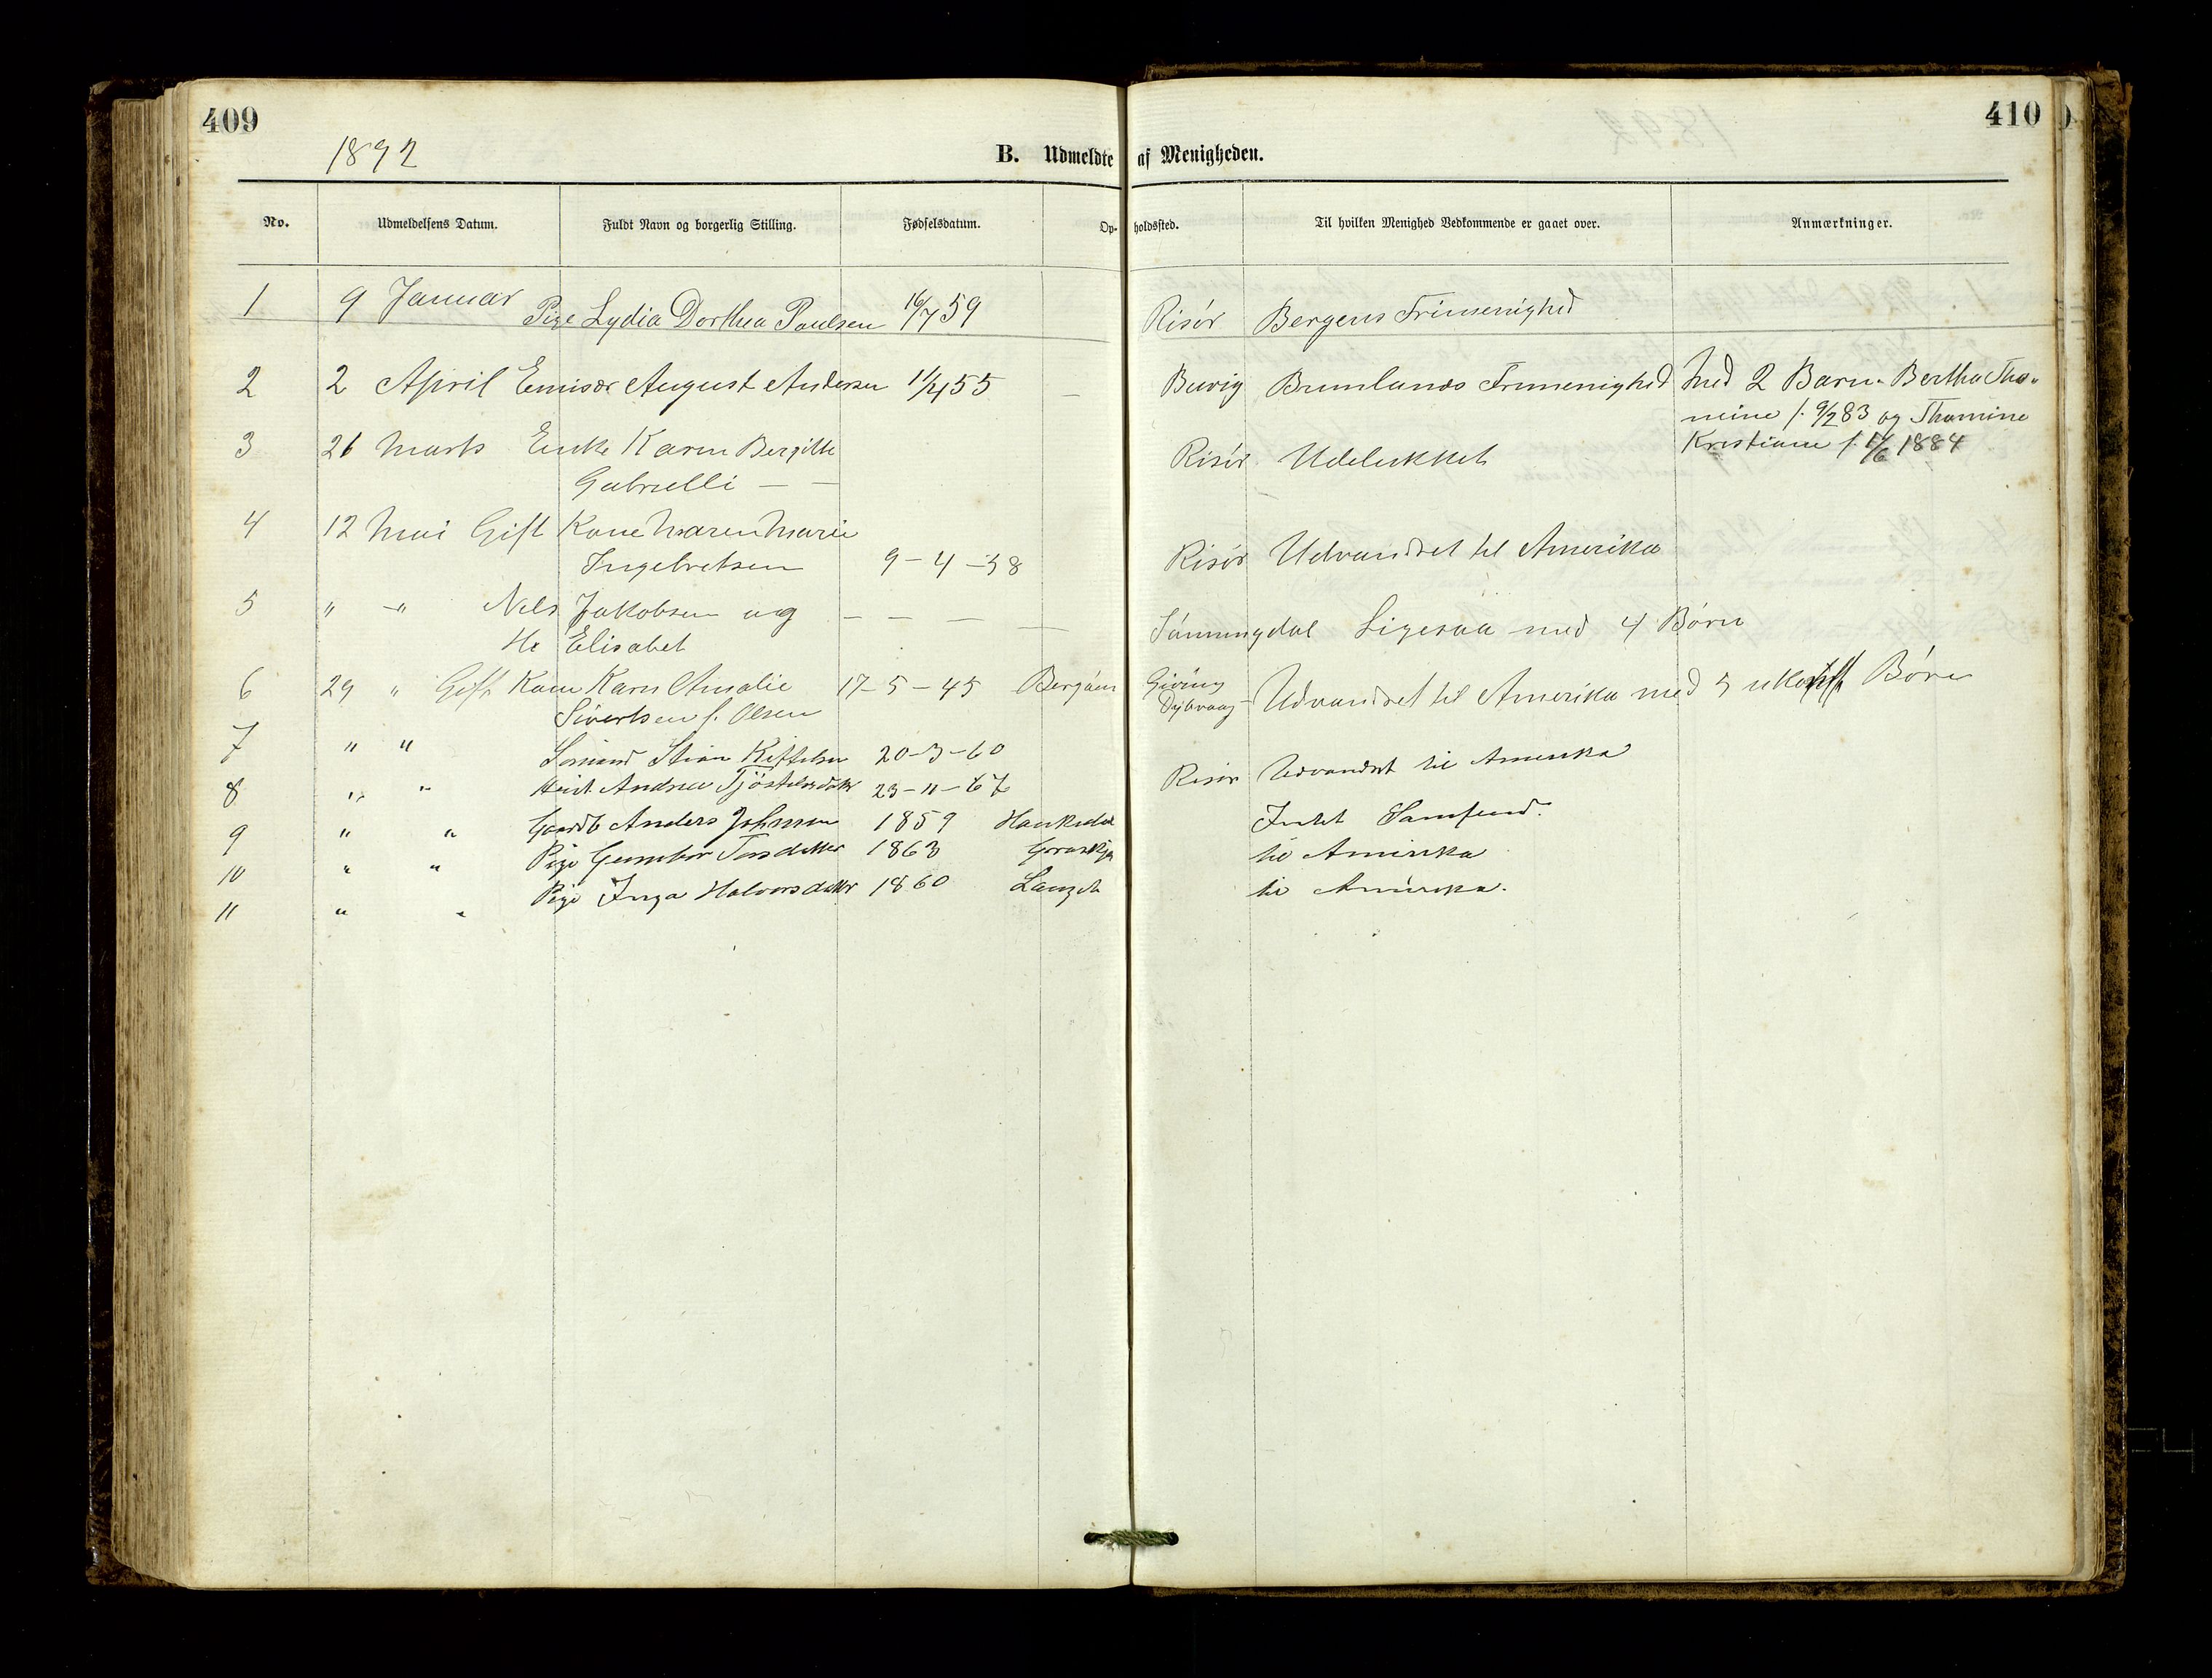 409
410
1892
B. Udmeldte af Menigheden.
No. Udmeldelsens Datum. Fuldt Navn og borgerlig Stilling. Fødselsdatum. Op- holdssted. Til hvilken Menighed Vedkommende er gaaet over. Anmærkninger.
1 9 Januar Pige Lydia Dorthea Paulsen 16/7 59 Risör Bergens Frimenighed
2 2 April Emisær August Andersen 11/4 55 — Buvig Brunlanæs Frimenighed Med 2 Barn. Bertha Tho-
meine f. 9/2 83 og Thomine
Kristiane f. 1884
3 21 Marts Enke Karen Bergitte Risör Udelukket
Gabrielli — —
4 12 Mai Gift Kone Maren Marie
Ingebretsen 9-4-38 Risör Udvandret til Amerika
5 " -" Nils Jakobsen og — — — — Sönningdal Ligesaa med 4 Börn
Hu Elisabet
6 29 " Gift Kone Karen Amalie 17-5-45 Giöving
Sivertsen f. Olsen Dybvaag- Udvandret til Amerika med 5 Börn
7 " " Sömand Stian Kittelsen 20-3-60 Risör Udvandret til Amerika
8 " " Andrea 23-11-67
9 " " Gaardb Anders Johnsen 1859 Intet Samfund.
10 " " Pige Gunbor 1863 til Amerika
11 " " Pige Inga Halvorsdatter 1860 til Amerika.